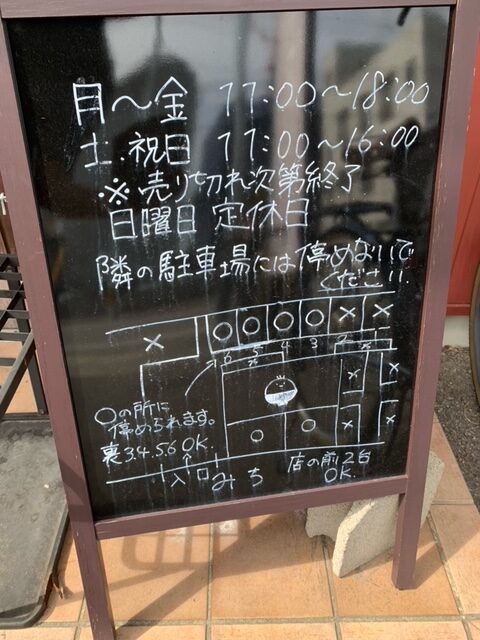 月〜金 11:00〜18:00
土.祝日 11:00〜16:00
※売り切れ次第終了
日曜日 定休日
隣の駐車場には停めないで
ください.
6 5 4 3 2 1
○の所に
停められます。
裏3.4.5.6 OK.
入口
みち
店の前2台
OK.